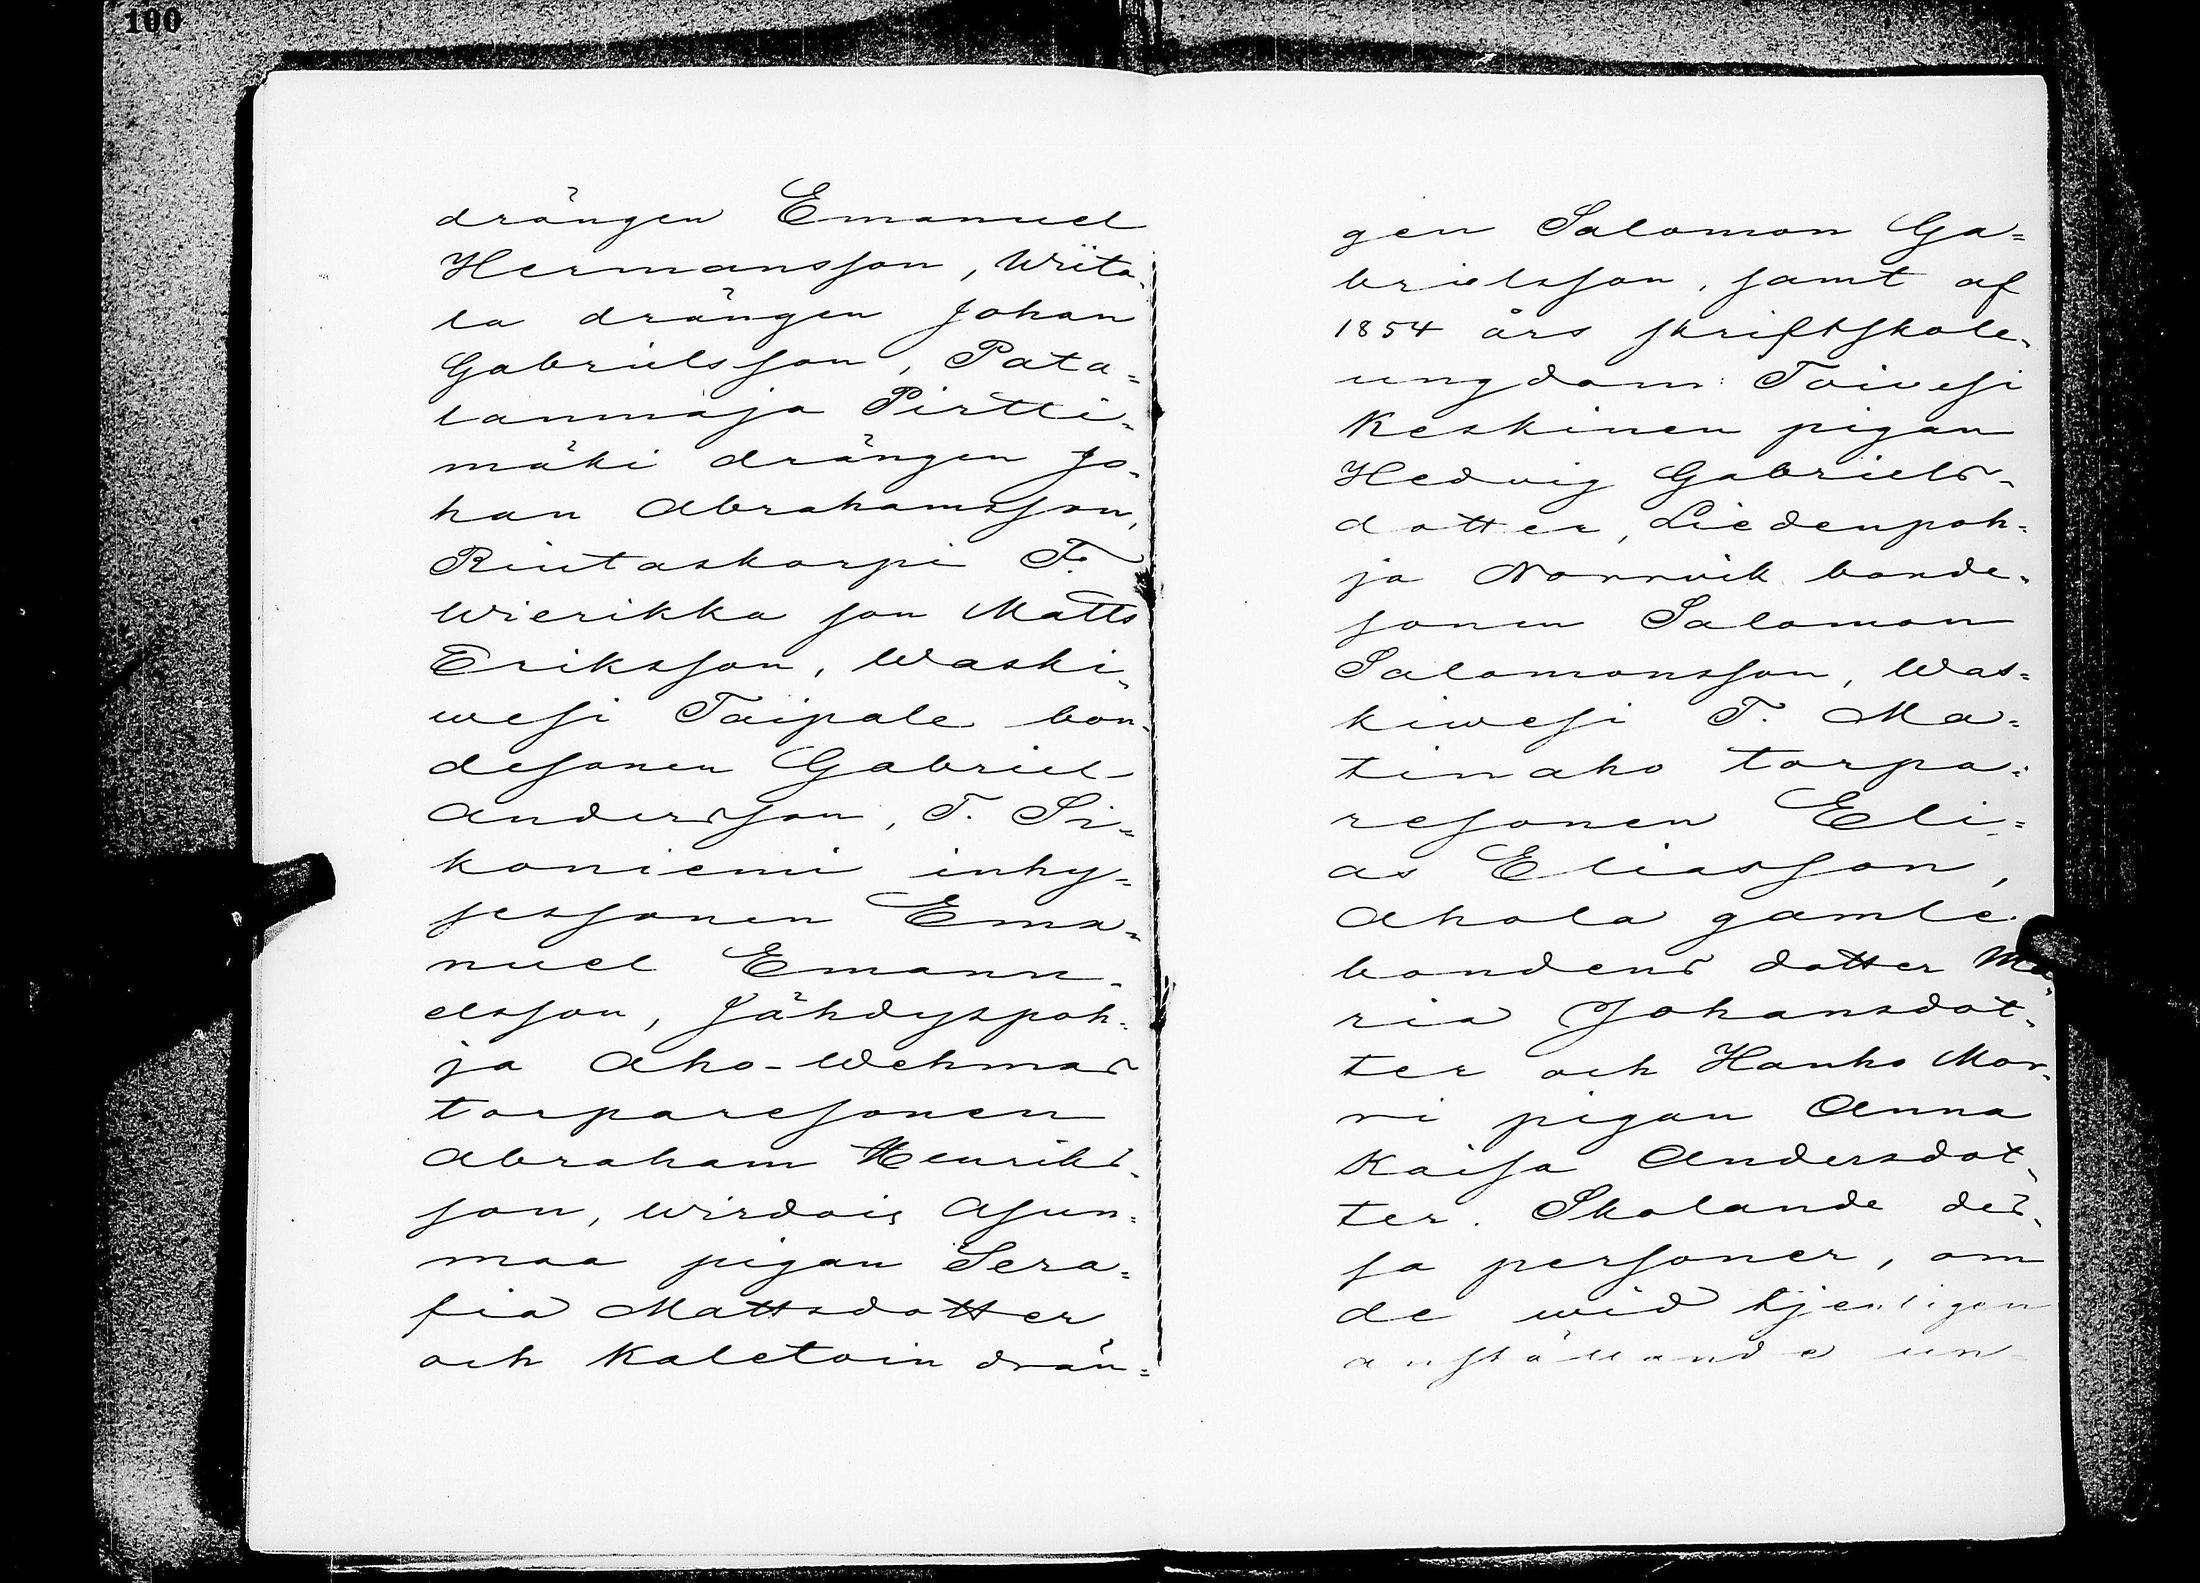 100
drängen Emanuel
Hermansson, Wiita-
la drängen Johan
Gabrielsson, Pata=
lanmaja Pirtti=
mäki drängen Jo-
han Abrahamsson,
Riutaskorpi T.
Wierikko son Matts
Eriksson, Waski-
wesi Taipale bon-
desonen Gabriel
Andersson, T. Si=
koniemi inhy=
sessonen Ema=
nuel Emanu-
elsson, Jähdyspoh-
ja Aho-Wehmas
torparesonen
Abraham Henriks-
son, Wirdois Asun=
maa pigan Sera=
fia Mattsdotter
och Kaletoin drän=
gen Salomon Ga=
brielsson, samt af
1854 års skriftskole-
ungdom: Toivesi
Keskinen pigan
Hedvig Gabriels-
dotter, Liedenpoh-
ja Norrvik bonde-
sonen Salomon
Salomonsson, Was=
kiwesi T. Ma=
tinaho torpa=
resonen Eli=
as Eliasson,
Ahola gamle
bondens dotter Ma-
ria Johansdot-
ter och Hanho Mor-
ri pigan Anna
Kaisa Andersdot-
ter. Skolande des-
sa personer, om
de wid tjenligen
anställande un-